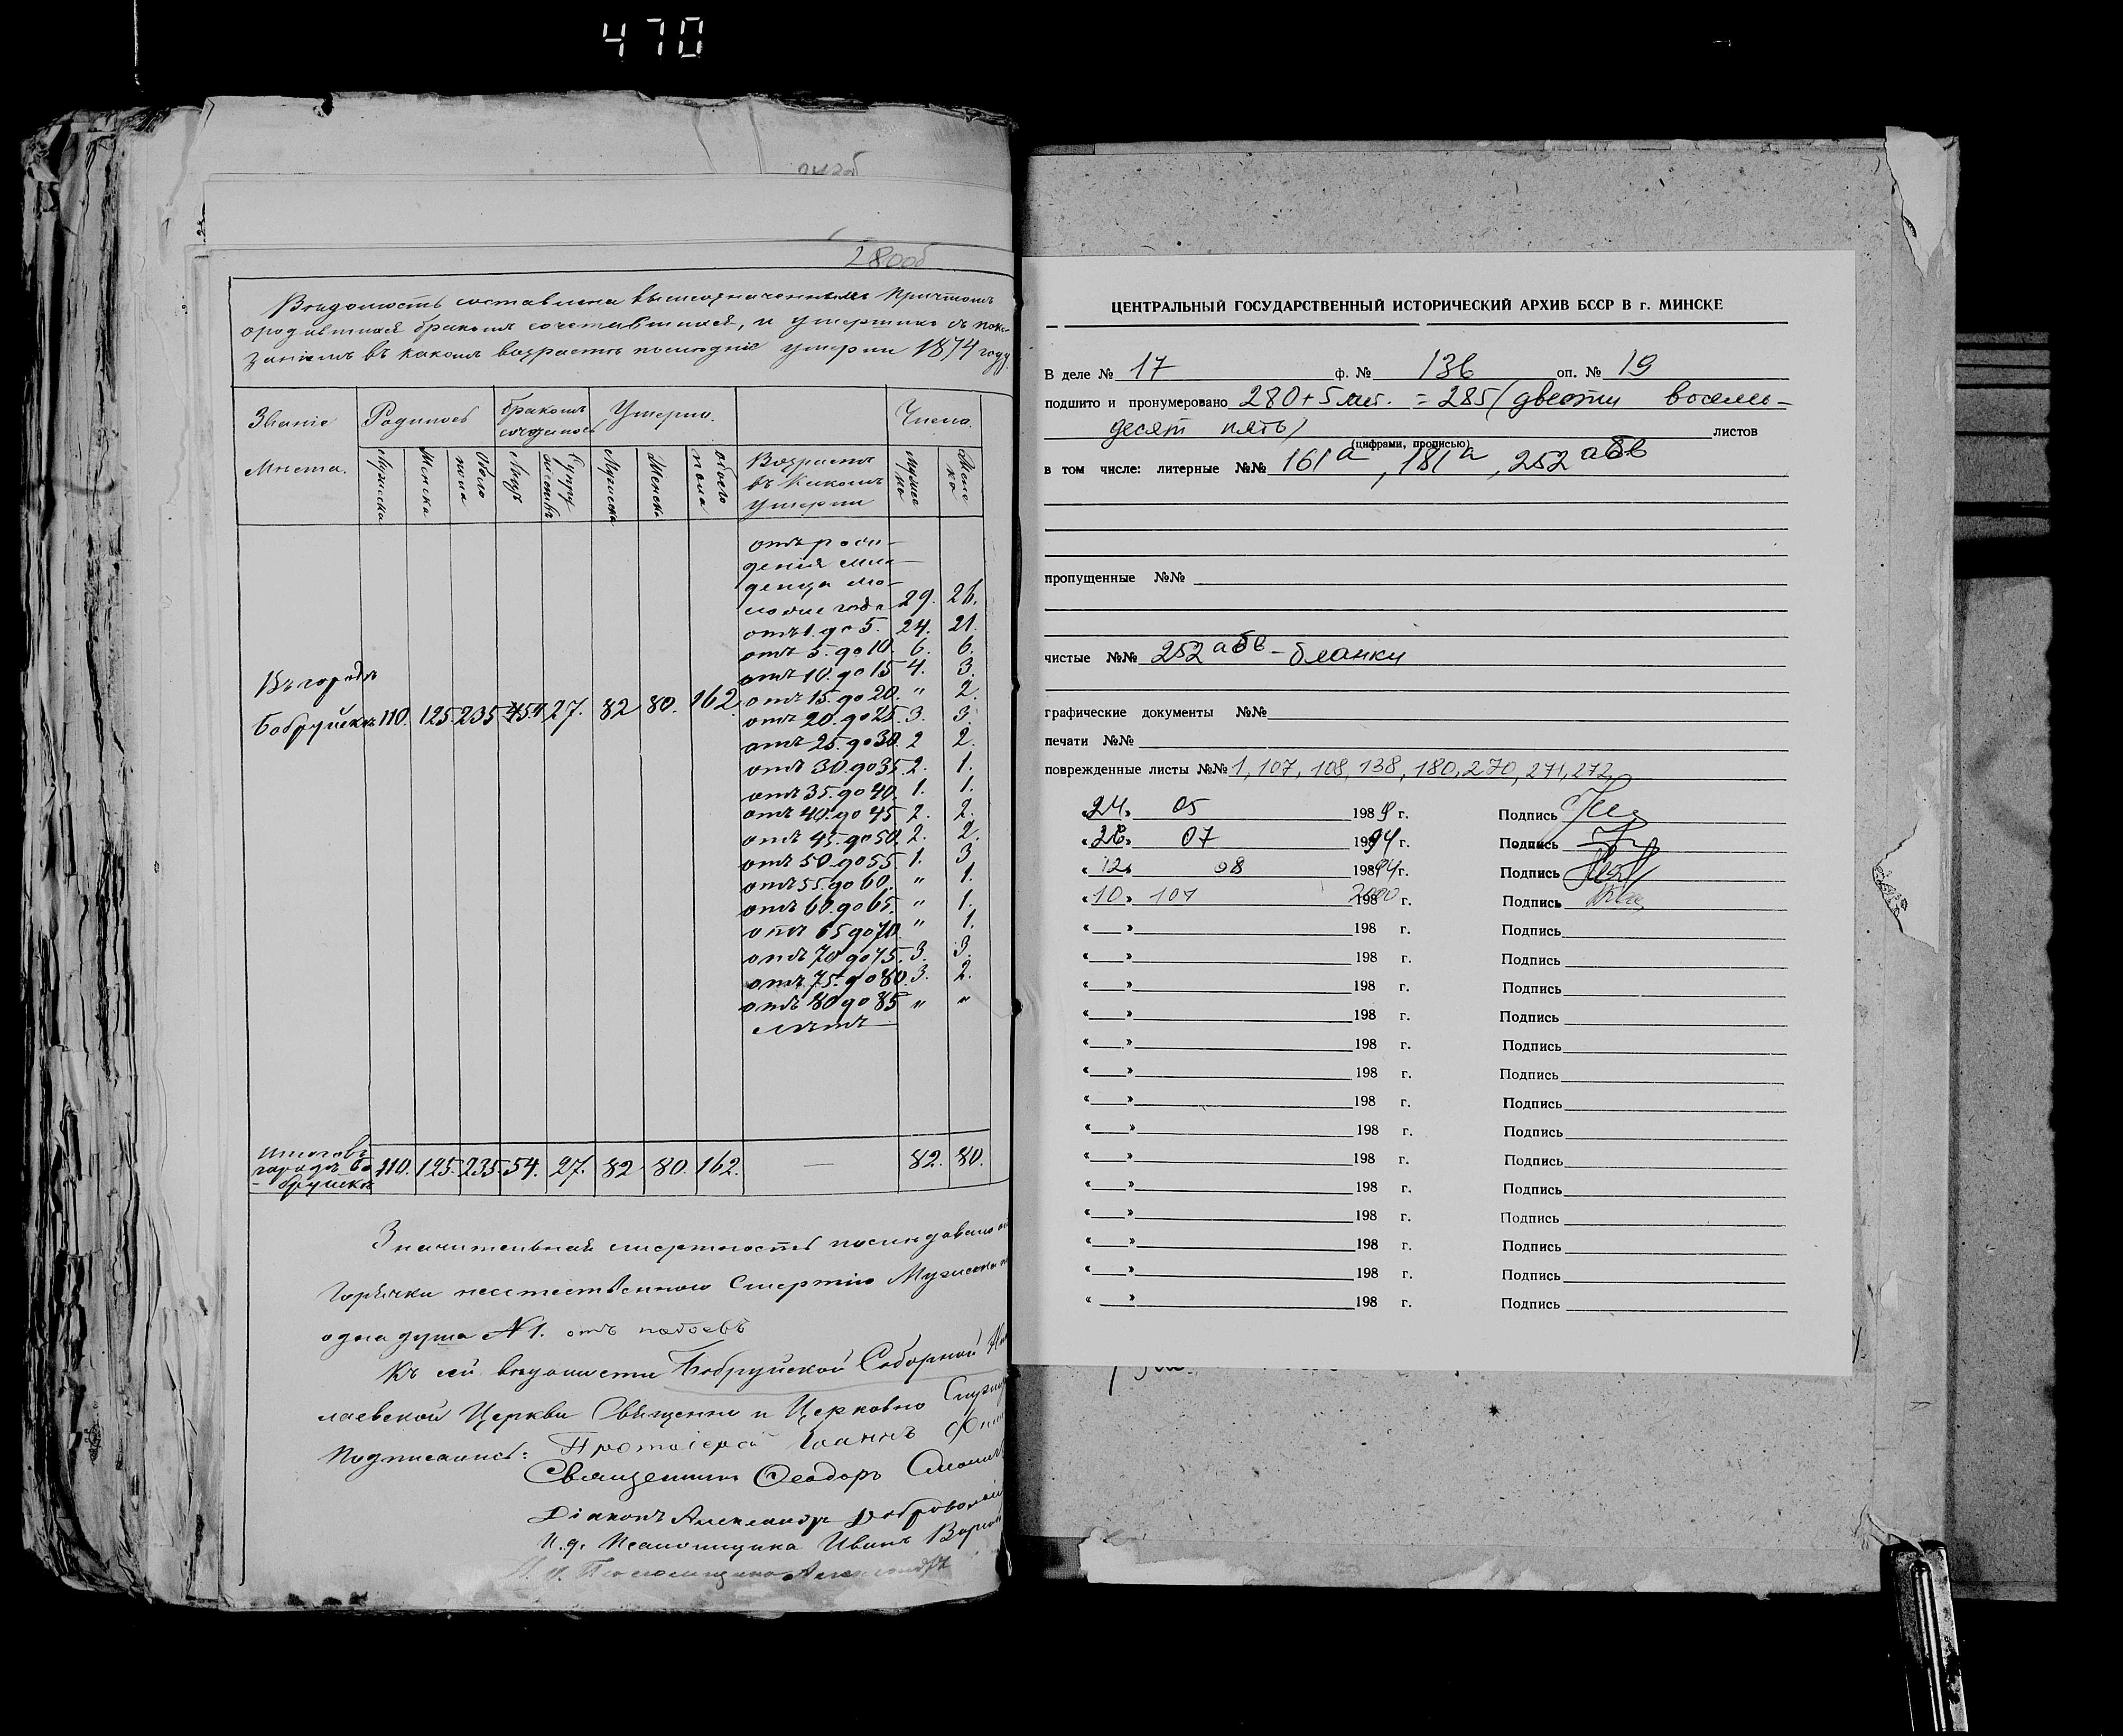 470
280об
Вѣдомость составлена вышеозначеннымъ Причтомъ
о родившихся бракомъ сочетавшихся, и умершихъ съ пока-
заніемъ въ какомъ возрастѣ послѣдніе умерли 1874 году.
Званіе Родилось бракомъ Умерло. Число.
сочеталось
Мѣста. Мужеска Женска Обоего пола Лицъ Супружествъ Мужеска Женска обоего пола Возрастъ въ какомъ умерли Мужеска Женска
отъ рож-
денія мла-
денца мо-
ложе года 29. 26.
отъ 1. до 5. 24. 21.
отъ 5. до 10. 6. 6.
отъ 10. до 15 4. 3.
Въ городѣ
Бобруйскѣ 110. 125. 235. 54 27. 82 80. 162. отъ 15. до 20. " 2.
отъ 20. до 25. 3. 3.
отъ 25. до 30. 2 2.
отъ 30. до 35 2. 1.
отъ 35. до 40 1. 1.
отъ 40. до 45 2. 2.
отъ 45. до 50. 2. 2.
отъ 50. до 55 1. 3
отъ 55. до 60. " 1.
отъ 60. до 65. " 1.
отъ 65 до 70. " 1.
отъ 70 до 75. 3. 3.
отъ 75. до 80. 3. 2.
отъ 80 до 85 " "
лѣтъ
Итого въ
городѣ Бо-
бруйскѣ 110. 125. 235. 54. 27. 82 80. 162. — 82. 80.
Значительная смертность послѣдовала
горячки неестественною Смертію Мужеска
одна душа №1. отъ побоевъ
Къ сей вѣдомости Бобруйской Соборной Нико
лаевской Церкви Священно и Церковно
Подписались: Протоіерей Іоаннъ
Священникъ Ѳеодоръ
Діаконъ Александръ
И.д. Псаломщика Иванъ
И. д. Псаломщика Александръ
ЦЕНТРАЛЬНЫЙ ГОСУДАРСТВЕННЫЙ ИСТОРИЧЕСКИЙ АРХИВ БССР В г. МИНСКЕ
В деле № 17 ф. № 136 оп. № 19
подшито и пронумеровано 280+5лит. = 285 (двести восемь-
десят пять) листов
(цифрами, прописью)
в том числе: литерные №№ 161а, 181а, 252абв
пропущенные №№
чистые №№ 252абв - бланки
графические документы №№
печати №№
поврежденные листы №№ 1, 107, 108, 138, 180, 270, 271, 272
«24» 05 1989 г. Подпись
«28» 07 1994 г. Подпись
«12» 08 1994 г. Подпись
«10» 04 2000 г. Подпись
« » 198 г. Подпись
« » 198 г. Подпись
« » 198 г. Подпись
« » 198 г. Подпись
« » 198 г. Подпись
« » 198 г. Подпись
« » 198 г. Подпись
« » 198 г. Подпись
« » 198 г. Подпись
« » 198 г. Подпись
« » 198 г. Подпись
« » 198 г. Подпись
« » 198 г. Подпись
« » 198 г. Подпись